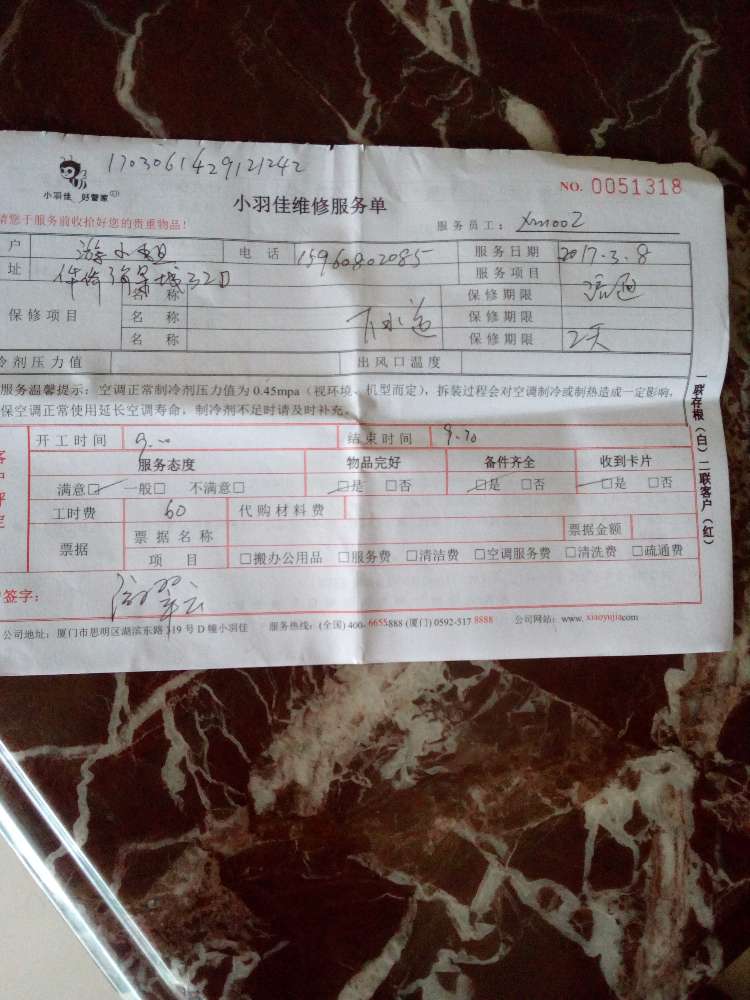 1703061429121242
小羽佳 好管家
小羽佳维修服务单
NO. 0051318
请您于服务前收拾好您的贵重物品!
服务员工: Xm1002
户 电 话 15960802085 服务日期 2017.3.8
址 32D 服务项目 疏通
保修项目 名 称 下水道 保修期限
名 称 保修期限
名 称 保修期限 2天
冷剂压力值 出风口温度
服务温馨提示: 空调正常制冷剂压力值为 0.45mpa (视环境、机型而定), 拆装过程会对空调制冷或制热造成一定影响,
保空调正常使用延长空调寿命, 制冷剂不足时请及时补充。
开工时间 结束时间
服务态度 物品完好 备件齐全 收到卡片
满意□ 一般□ 不满意□ □是 □否 □是 □否 □是 □否
工时费 60 代购材料费
票据 票 据 名 称 票据金额
项 目 □搬办公用品 □服务费 □清洁费 □空调服务费 □清洗费 □疏通费
签字:
公司地址: 厦门市思明区湖滨东路 319 号 D 幢小羽佳 服务热线: (全国) 400-6655888 (厦门) 0592-517 8888 公司网站: www.xiaoyujia.com
一联存根(白) 二联客户(红)